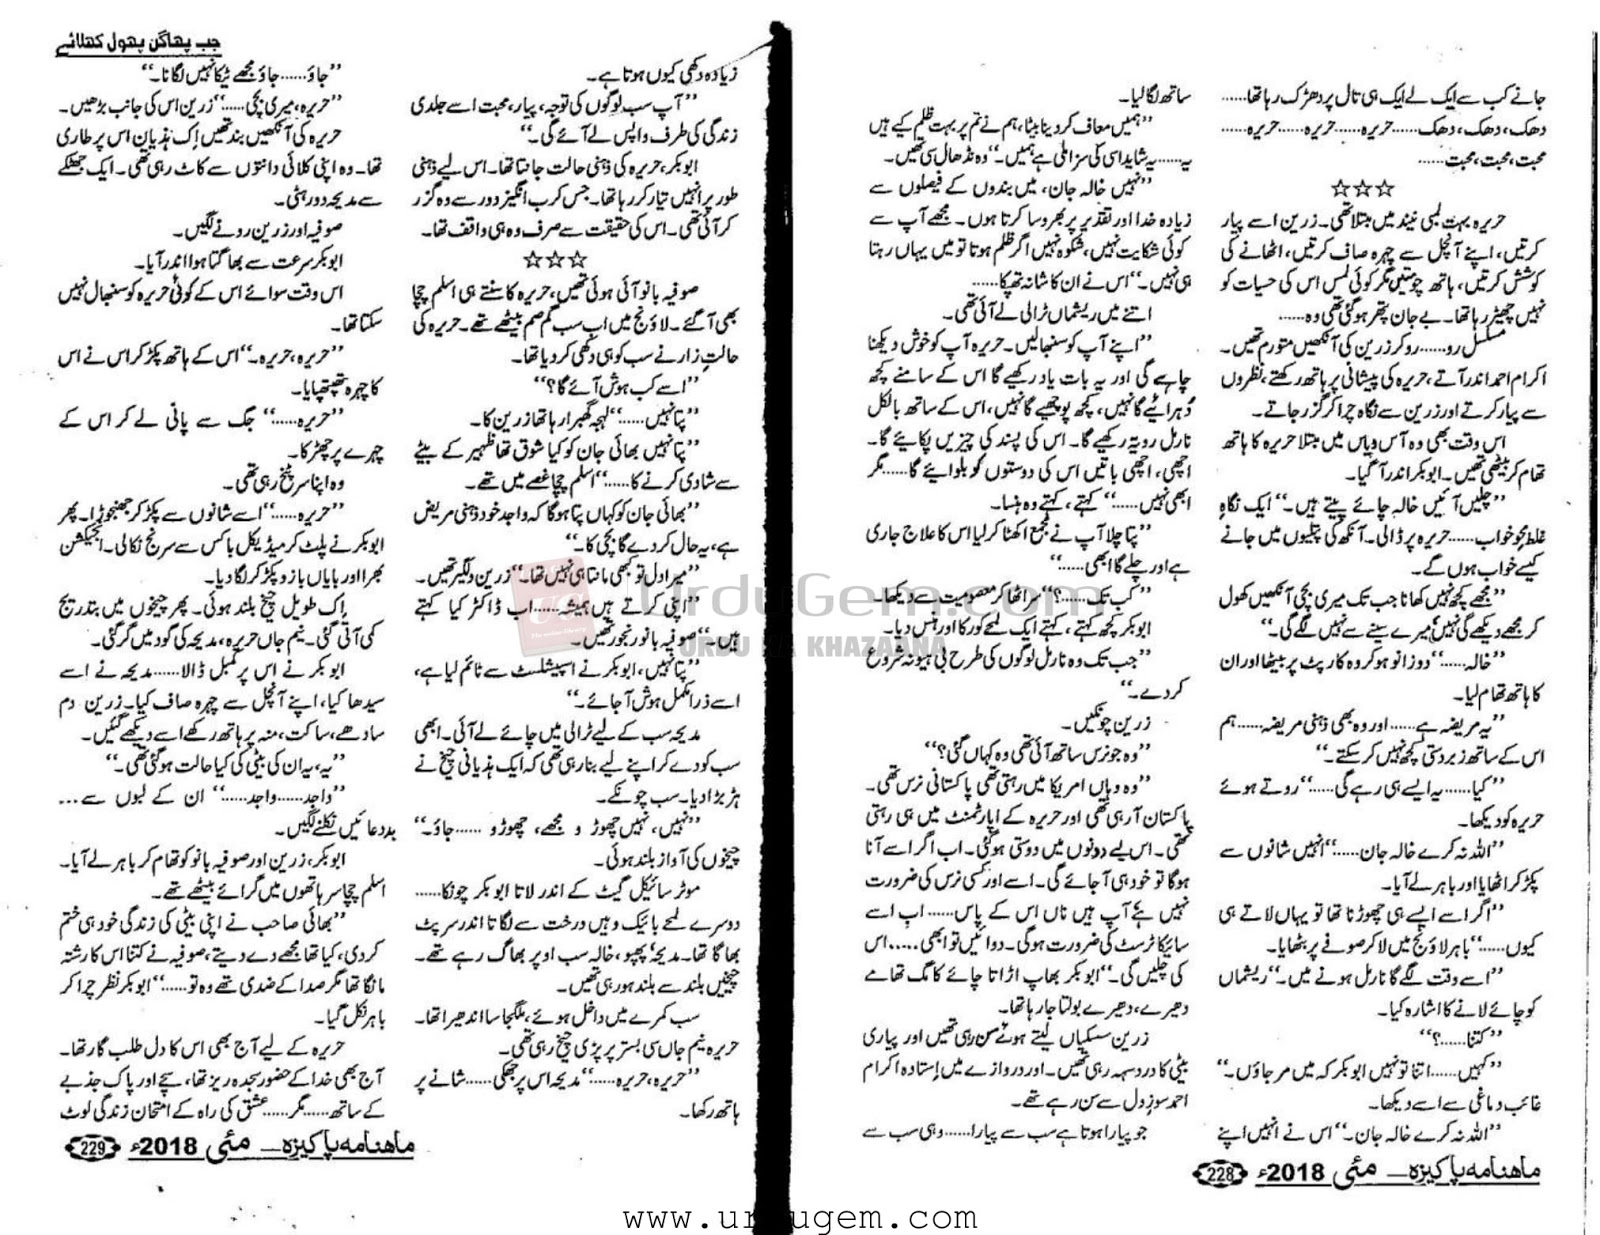 جانے کب سے ایک لے ایک ہی تال پر دھڑک رہا تھا......
دھک، دھک، دھک...... حریرہ...... حریرہ...... حریرہ......
محبت، محبت، محبت......
☆☆☆
حریرہ بہت لمبی نیند میں مبتلا تھی۔ زرین اسے پیار
کرتیں، اپنے آنچل سے چہرہ صاف کرتیں، اٹھانے کی
کوشش کرتیں، ہاتھ چومتیں مگر کوئی لمس اس کی حسیات کو
نہیں چھیڑ رہا تھا۔ بے جان پتھر ہو گئی تھی وہ......
مسلسل رو...... رو کر زرین کی آنکھیں متورم تھیں۔
اکرام احمد اندر آتے، حریرہ کی پیشانی پر ہاتھ رکھتے، نظروں
سے پیار کرتے اور زرین سے نگاہ چرا کر گزر جاتے۔
اس وقت بھی وہ آس ویاس میں مبتلا حریرہ کا ہاتھ
تھام کر بیٹھی تھیں۔ ابوبکر اندر آ گیا۔
”چلیں آئیں خالہ چائے پیتے ہیں۔“ ایک نگاہِ
غلط محوِ خواب...... حریرہ پر ڈالی۔ آنکھ کی پتلیوں میں جانے
کیسے خواب ہوں گے۔
”مجھے کچھ نہیں کھانا جب تک میری بچی آنکھیں کھول
کر مجھے دیکھے گی نہیں، میرے سینے سے نہیں لگے گی۔“
”خالہ......“ دو زانو ہو کر وہ کارپٹ پر بیٹھا اور ان
کا ہاتھ تھام لیا۔
”یہ مریضہ ہے...... اور وہ بھی ذہنی مریضہ...... ہم
اس کے ساتھ زبردستی کچھ نہیں کر سکتے۔“
”کیا...... یہ ایسے ہی رہے گی......“ روتے ہوئے
حریرہ کو دیکھا۔
”اللہ نہ کرے خالہ جان......“ انہیں شانوں سے
پکڑ کر اٹھایا اور باہر لے آیا۔
”اگر اسے ایسے ہی چھوڑنا تھا تو یہاں لاتے ہی
کیوں......“ باہر لاؤنج میں لا کر صوفے پر بٹھایا۔
”اسے وقت لگے گا نارمل ہونے میں۔“ ریشماں
کو چائے لانے کا اشارہ کیا۔
”کتنا......؟“
”کہیں...... اتنا تو نہیں ابوبکر کہ میں مر جاؤں۔“
غائب دماغی سے اسے دیکھا۔
”اللہ نہ کرے خالہ جان۔“ اس نے انہیں اپنے
ساتھ لگا لیا۔
”ہمیں معاف کر دینا بیٹا، ہم نے تم پر بہت ظلم کیے ہیں
یہ...... یہ شاید اسی کی سزا ملی ہے ہمیں۔“ وہ نڈھال سی تھیں۔
”نہیں خالہ جان، میں بندوں کے فیصلوں سے
زیادہ خدا اور تقدیر پر بھروسا کرتا ہوں۔ مجھے آپ سے
کوئی شکایت نہیں، شکوہ نہیں اگر ظلم ہوتا تو میں یہاں رہتا
ہی نہیں۔“ اس نے ان کا شانہ تھپکا......
اتنے میں ریشماں ٹرالی لے آئی تھی۔
”اپنے آپ کو سنبھالیں۔ حریرہ آپ کو خوش دیکھنا
چاہے گی اور یہ بات یاد رکھیے گا اس کے سامنے کچھ
دُہرائیے گا نہیں، کچھ پوچھیے گا نہیں، اس کے ساتھ بالکل
نارمل رویہ رکھیے گا۔ اس کی پسند کی چیزیں پکائیے گا۔
اچھی، اچھی باتیں اس کی دوستوں کو بلوائیے گا...... مگر
ابھی نہیں......“ کہتے، کہتے وہ ہنسا۔
”پتا چلا آپ نے مجمع اکھٹا کر لیا اس کا علاج جاری
ہے اور چلے گا ابھی......“
”کب تک......؟“ سر اٹھا کر معصومیت سے دیکھا۔
ابوبکر کچھ کہتے، کہتے ایک لمحے کو رکا اور ہنس دیا۔
”جب تک وہ نارمل لوگوں کی طرح بی ہیو نہ شروع
کر دے۔“
زرین چونکیں۔
”وہ جو نرس ساتھ آئی تھی وہ کہاں گئی؟“
”وہ وہاں امریکا میں رہتی تھی پاکستانی نرس تھی۔
پاکستان آ رہی تھی اور حریرہ کے اپارٹمنٹ میں ہی رہتی
تھی۔ اس لیے دونوں میں دوستی ہو گئی۔ اب اگر اسے آنا
ہوگا تو خود ہی آ جائے گی۔ اسے اور کسی نرس کی ضرورت
نہیں ہے آپ ہیں ناں اس کے پاس...... اب اسے
سائیکاٹرسٹ کی ضرورت ہوگی۔ دوائیں تو ابھی..... اس
کی چلیں گی۔“ ابوبکر بھاپ اڑاتا چائے کا مگ تھامے
دھیرے، دھیرے بولتا جا رہا تھا۔
زرین سسکیاں لیتے ہوئے سن رہی تھیں اور پیاری
بیٹی کا درد سہہ رہی تھیں۔ اور دروازے میں ایستادہ اکرام
احمد سوزِ دل سے سن رہے تھے۔
جو پیارا ہوتا ہے سب سے پیارا...... وہی سب سے
ماہنامہ پاکیزہ۔ مئی 2018ء 228
جب پھاگن پھول کھلائے
زیادہ دکھی کیوں ہوتا ہے۔
”آپ سب لوگوں کی توجہ، پیار، محبت اسے جلدی
زندگی کی طرف واپس لے آئے گی۔“
ابوبکر، حریرہ کی ذہنی حالت جانتا تھا۔ اس لیے ذہنی
طور پر انہیں تیار کر رہا تھا۔ جس کرب انگیز دور سے وہ گزر
کر آئی تھی۔ اس کی حقیقت سے صرف وہ ہی واقف تھا۔
☆☆☆
صوفیہ بانو آئی ہوئی تھیں، حریرہ کا سنتے ہی اسلم چچا
بھی آ گئے۔ لاؤنج میں اب سب گم صم بیٹھے تھے۔ حریرہ کی
حالتِ زار نے سب کو ہی دکھی کر دیا تھا۔
”اسے کب ہوش آئے گا؟“
”پتا نہیں......“ لہجہ گھبرا رہا تھا زرین کا۔
”پتا نہیں بھائی جان کو کیا شوق تھا ظہیر کے بیٹے
سے شادی کرنے کا......“ اسلم چچا غصے میں تھے۔
”بھائی جان کو کہاں پتا ہوگا کہ واجد خود ذہنی مریض
ہے، یہ حال کر دے گا بچی کا۔“
”میرا دل تو کبھی مانتا ہی نہیں تھا۔“ زرین دلگیر تھیں۔
”اپنی کرتے ہیں ہمیشہ...... اب ڈاکٹر کیا کہتے
ہیں۔“ صوفیہ بانو رنجور تھیں۔
”پتا نہیں، ابوبکر نے اسپیشلسٹ سے ٹائم لیا ہے،
اسے ذرا مکمل ہوش آ جائے۔“
مدیحہ سب کے لیے ٹرالی میں چائے لے آئی۔ ابھی
سب کو دے کر اپنے لیے بنا رہی تھی کہ ایک ہذیانی چیخ نے
ہڑبڑا دیا۔ سب چونکے۔
”نہیں، نہیں چھوڑو مجھے، چھوڑو...... جاؤ۔“
چیخوں کی آواز بلند ہوئی۔
موٹر سائیکل گیٹ کے اندر لاتا ابوبکر چونکا......
دوسرے لمحے بائیک وہیں درخت سے لگاتا اندر سرپٹ
بھاگا تھا۔ مدیحہ، پھپو، خالہ سب اوپر بھاگ رہے تھے۔
چیخیں بلند سے بلند ہو رہی تھیں۔
سب کمرے میں داخل ہوئے، ملگجا سا اندھیرا تھا۔
حریرہ نیم جاں سی بستر پر پڑی چیخ رہی تھی۔
”حریرہ، حریرہ......“ مدیحہ اس پر جھکی...... شانے پر
ہاتھ رکھا۔
”جاؤ...... جاؤ مجھے ٹیکا نہیں لگانا۔“
”حریرہ، میری بچی......“ زرین اس کی جانب بڑھیں۔
حریرہ کی آنکھیں بند تھیں اِک ہذیان اس پر طاری
تھا۔ وہ اپنی کلائی دانتوں سے کاٹ رہی تھی۔ ایک جھٹکے
سے مدیحہ دور ہٹی۔
صوفیہ اور زرین رونے لگیں۔
ابوبکر سرعت سے بھاگتا ہوا اندر آیا۔
اس وقت سوائے اس کے کوئی حریرہ کو سنبھال نہیں
سکتا تھا۔
”حریرہ، حریرہ۔“ اس کے ہاتھ پکڑ کر اس نے اس
کا چہرہ تھپتھپایا۔
”حریرہ......“ جگ سے پانی لے کر اس کے
چہرے پر چھڑکا۔
وہ اپنا سر پٹخ رہی تھی۔
”حریرہ......“ اسے شانوں سے پکڑ کر جھنجوڑا۔ پھر
ابوبکر نے پلٹ کر میڈیکل باکس سے سرنج نکالی۔ انجیکشن
بھرا اور بایاں بازو پکڑ کر لگا دیا۔
اِک طویل چیخ بلند ہوئی۔ پھر چیخوں میں بتدریج
کمی آتی گئی۔ نیم جاں حریرہ، مدیحہ کی گود میں گر گئی۔
ابوبکر نے اس پر کمبل ڈالا...... مدیحہ نے اسے
سیدھا کیا، اپنے آنچل سے چہرہ صاف کیا۔ زرین دم
سادھے، ساکت، منہ پر ہاتھ رکھے اسے دیکھے گئیں۔
”یہ، یہ ان کی بیٹی کی کیا حالت ہو گئی تھی۔“
”واجد...... واجد......“ ان کے لبوں سے...
بددعائیں نکلنے لگیں۔
ابوبکر، زرین اور صوفیہ بانو کو تھام کر باہر لے آیا۔
اسلم چچا سر ہاتھوں میں گرائے بیٹھے تھے۔
”بھائی صاحب نے اپنی بیٹی کی زندگی خود ہی ختم
کر دی، کیا تھا مجھے دے دیتے، صوفیہ نے کتنا اس کا رشتہ
مانگا تھا مگر صدا کے ضدی تھے وہ تو......“ ابوبکر نظر چرا کر
باہر نکل گیا۔
حریرہ کے لیے آج بھی اس کا دل طلب گار تھا۔
آج بھی خدا کے حضور سجدہ ریز تھا، سچے اور پاک جذبے
کے ساتھ...... مگر...... عشق کی راہ کے امتحان زندگی لوٹ
ماہنامہ پاکیزہ۔ مئی 2018ء 229
UrduGem.com
URDU KA KHAZAANA
www.urdugem.com